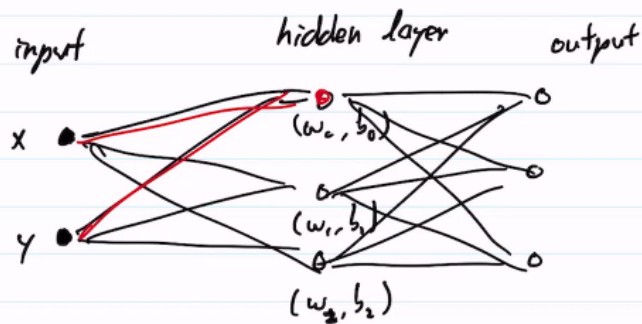 input hidden layer output
x
(w₀, b₀)
y
(w₁, b₁)
(w₂, b₂)